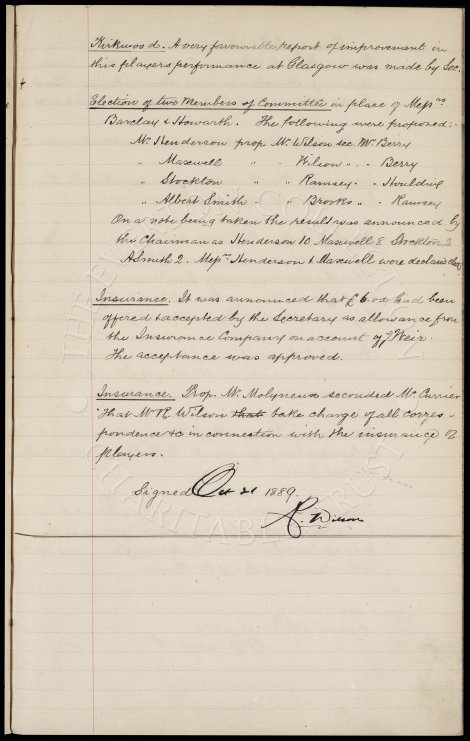 Kirkwood. A very favourable report of improvement in
this players performance at Glasgow was made by Sec.
Election of two Members of Committee in place of Messrs
Barclay & Howarth. The following were proposed:-
Mr Henderson prop Mr Wilson sec. Mr Berry
" Maxwell " " Wilson " " Berry
" Stockton " " Ramsey " " Houlding
" Albert Smith " " Brooks " " Ramsey
On a vote being taken the result was announced by
the Chairman as Henderson 10 Maxwell 8 Stockton 3
A Smith 2. Messrs Henderson & Maxwell were declared elected
Insurance. It was announced that £6.0.0 had been
offered & accepted by the Secretary as allowance from
the Insurance Company on account of J Weir.
The acceptance was approved.
Insurance. Prop. Mr Molyneux seconded Mr Currier
"That Mr R Wilson that take charge of all corres-
pondence &c in connection with the insurance of
players.
Signed Oct 21 1889
R. Wilson
THE EVERTON COLLECTION
CHARITABLE TRUST